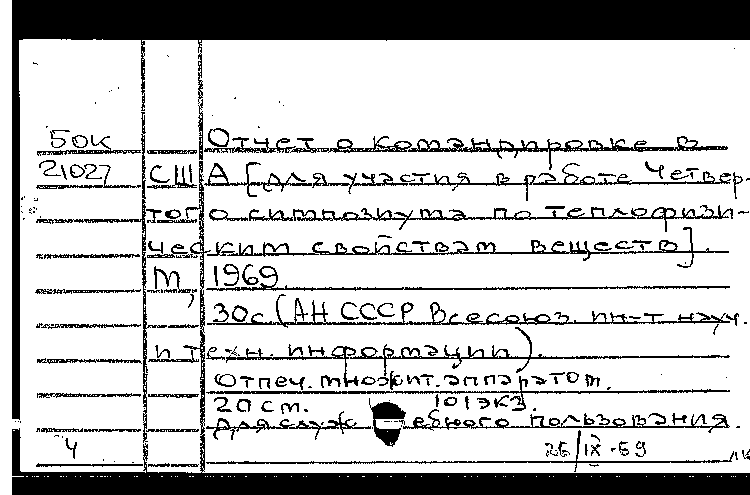 БОК Отчет о командировке в
21027 США [для участия в работе Четвер-
того симпозиума по теплофизи-
ческим свойствам веществ].
М, 1969.
30с (АН СССР Всесоюз. ин-т науч.
и техн. информации).
Отпеч. множит. аппаратом.
20 см. 101 экз.
Для служебного пользования.
4 26/IX-69